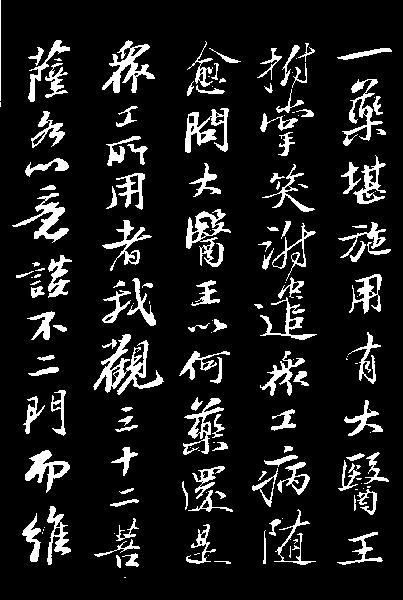 一藥堪施用有大醫王
拊掌笑謝遣衆工病随
愈問大醫王以何藥還是
衆工所用者我觀三十二菩
薩各以意談不二門而維